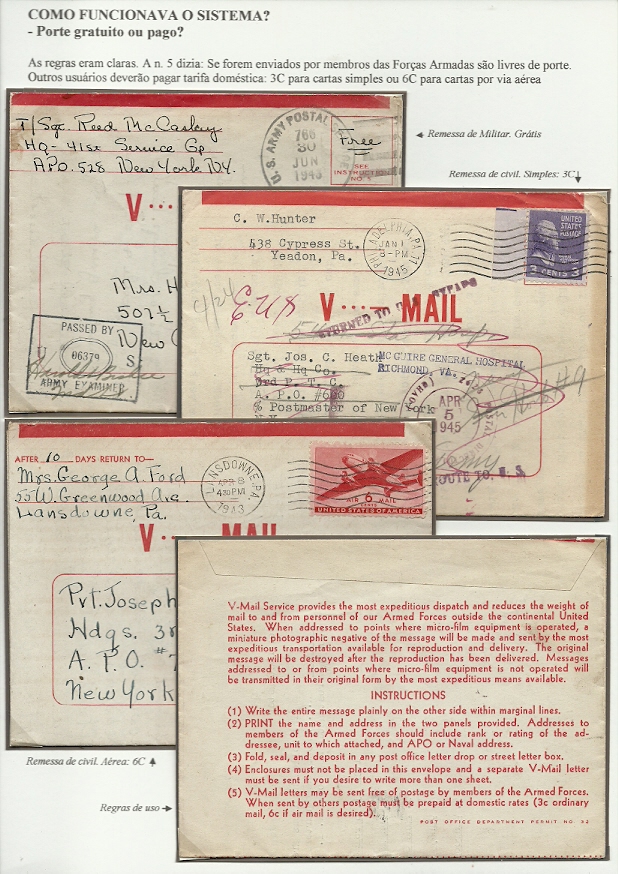 COMO FUNCIONAVA O SISTEMA?
- Porte gratuito ou pago?
As regras eram claras. A n. 5 dizia: Se forem enviados por membros das Forças Armadas são livres de porte.
Outros usuários deverão pagar tarifa doméstica: 3C para cartas simples ou 6C para cartas por via aérea
T/Sgt. Reed McCaslay
HQ - 41st Service Gp
APO. 528 New York N.Y.
U.S. ARMY POSTAL
766
30
JUN
1943
Free
SEE
INSTRUCTION
NO. 5
Remessa de Militar. Grátis
V
Mrs. H
507½
New
PASSED BY
U S
06379
ARMY EXAMINER
Remessa de civil. Simples: 3C
C. W.Hunter
438 Cypress St.
Yeadon, Pa.
PHILADELPHIA, PA. 11
JAN 1
8-PM
1945
UNITED
STATES
POSTAGE
3 CENTS 3
V ··· — MAIL
Sgt. Jos. C. Heath
Hq & Hq Co.
3rd P. T. C.
A. P. O. #600
% Postmaster of New York
N.Y.
MC GUIRE GENERAL HOSPITAL
RICHMOND, VA.
APR
5
1945
AFTER 10 DAYS RETURN TO—
Mrs. George A. Ford
55 W. Greenwood Ave.
Lansdowne, Pa.
LANSDOWNE, PA.
APR 8
430PM
1943
6
AIR MAIL
CENTS
UNITED STATES OF AMERICA
V ··· — MAIL
Pvt. Joseph
Hdqs. 3r
A. P. O. #
New York
Remessa de civil. Aérea: 6C
Regras de uso
V-Mail Service provides the most expeditious dispatch and reduces the weight of
mail to and from personnel of our Armed Forces outside the continental United
States. When addressed to points where micro-film equipment is operated, a
miniature photographic negative of the message will be made and sent by the most
expeditious transportation available for reproduction and delivery. The original
message will be destroyed after the reproduction has been delivered. Messages
addressed to or from points where micro-film equipment is not operated will
be transmitted in their original form by the most expeditious means available.
INSTRUCTIONS
(1) Write the entire message plainly on the other side within marginal lines.
(2) PRINT the name and address in the two panels provided. Addresses to
members of the Armed Forces should include rank or rating of the ad-
dressee, unit to which attached, and APO or Naval address.
(3) Fold, seal, and deposit in any post office letter drop or street letter box.
(4) Enclosures must not be placed in this envelope and a separate V-Mail letter
must be sent if you desire to write more than one sheet.
(5) V-Mail letters may be sent free of postage by members of the Armed Forces.
When sent by others postage must be prepaid at domestic rates (3c ordinary
mail, 6c if air mail is desired).
POST OFFICE DEPARTMENT PERMIT NO. 52